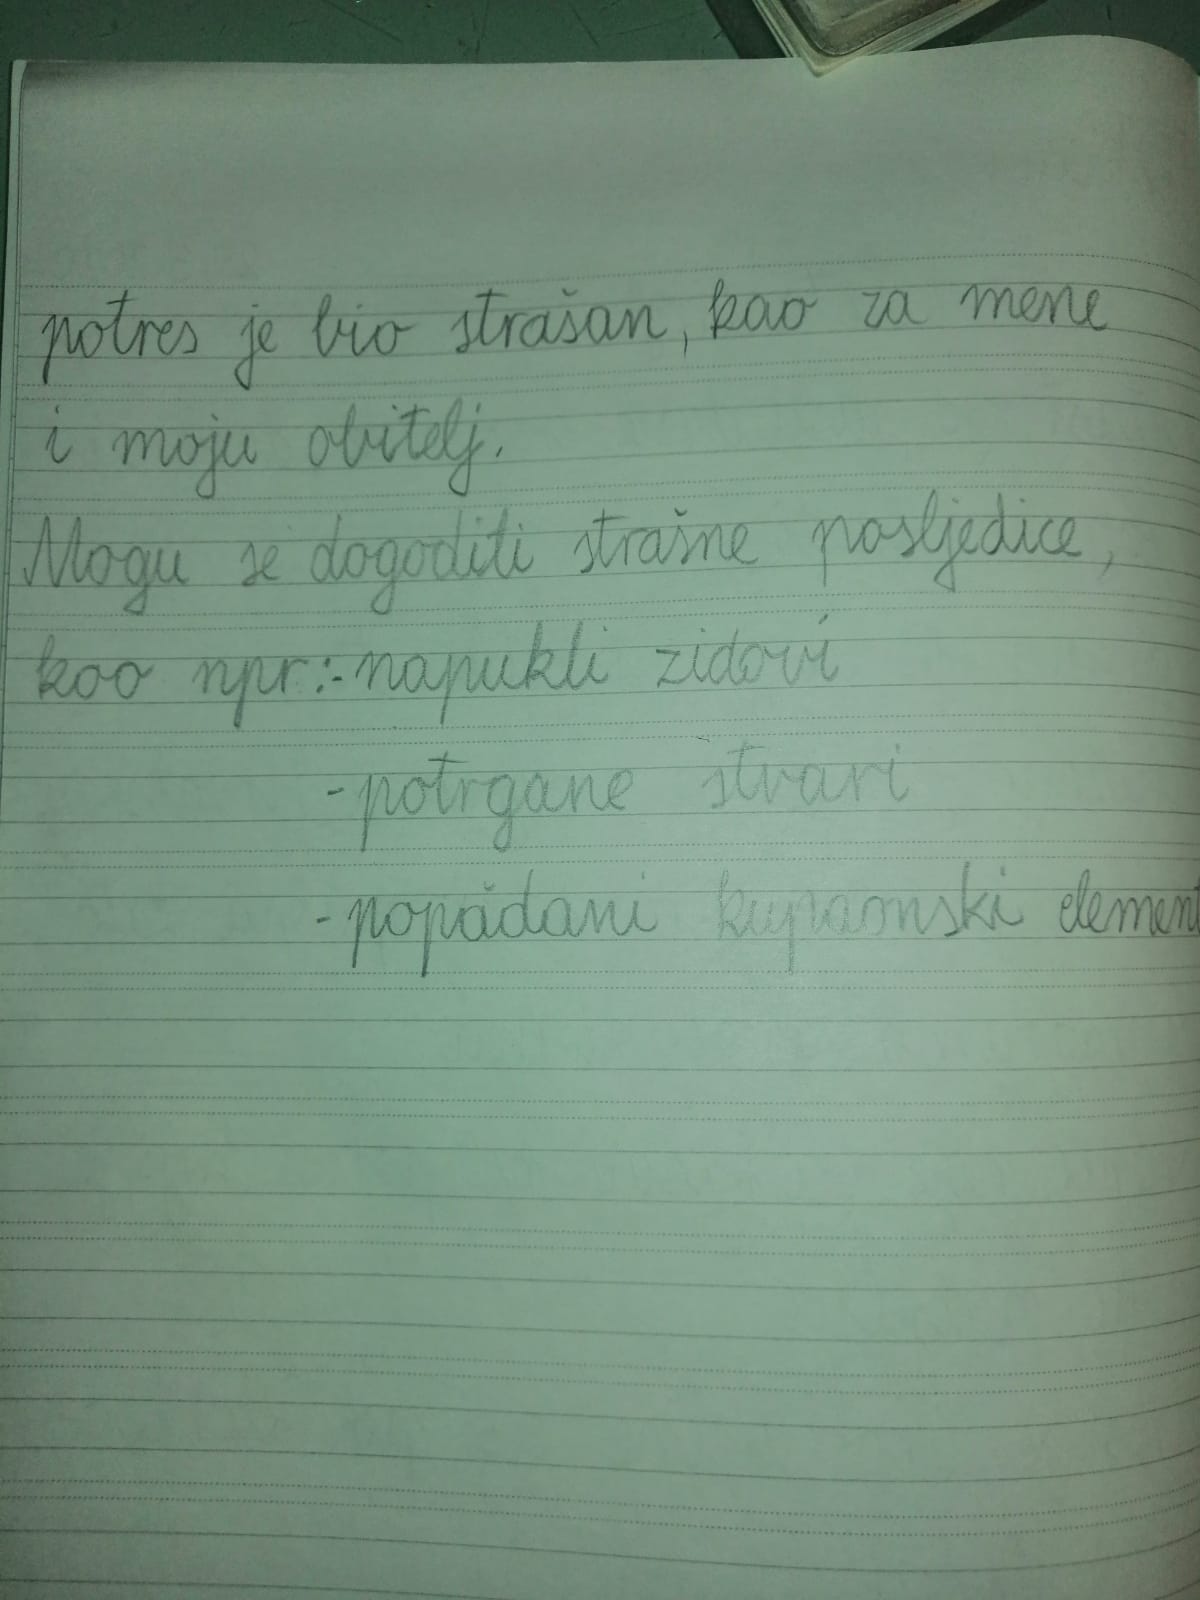 potres je bio strašan, kao za mene
i moju obitelj.
Mogu se dogoditi strašne posljedice,
kao npr:-napukli zidovi
-potrgane stvari
-popadani kupaonski element